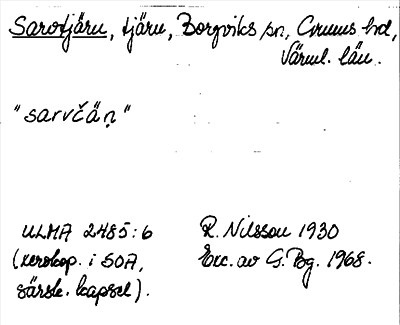 Sarvtjärn, tjärn, Borgviks sn, Grums hd,
Värml. län.
"sarvčäṇ"
ULMA 2485:6 R. Nilsson 1930
(xerokop. i SOA, Exc. av G. Bg. 1968.
särsk. kapsel).